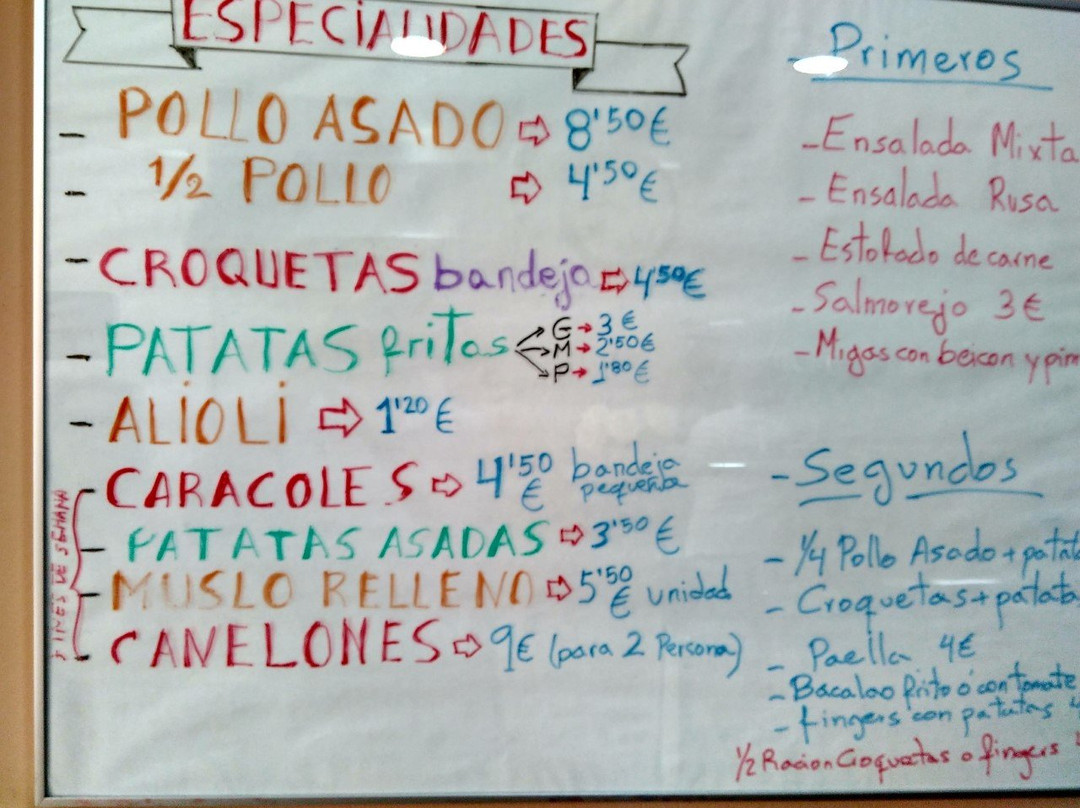 ESPECIALIDADES
- POLLO ASADO ⇨ 8'50 €
- 1/2 POLLO ⇨ 4'50 €
- CROQUETAS bandeja ⇨ 4'50 €
- PATATAS fritas
G → 3 €
M → 2'50 €
P → 1'80 €
- ALIOLI ⇨ 1'20 €
- CARACOLES ⇨ 4'50 € bandeja pequeña
- PATATAS ASADAS ⇨ 3'50 €
- MUSLO RELLENO ⇨ 5'50 € unidad
- CANELONES ⇨ 9€ (para 2 Persona)
FINES DE SEMANA
- Primeros
- Ensalada Mixta
- Ensalada Rusa
- Estofado de carne
- Salmorejo 3 €
- Migas con beicon y pim
- Segundos
- 1/4 Pollo Asado + patat
- Croquetas + patata
- Paella 4€
- Bacalao frito ó con tomate
- fingers con patatas
1/2 Racion Croquetas o fingers